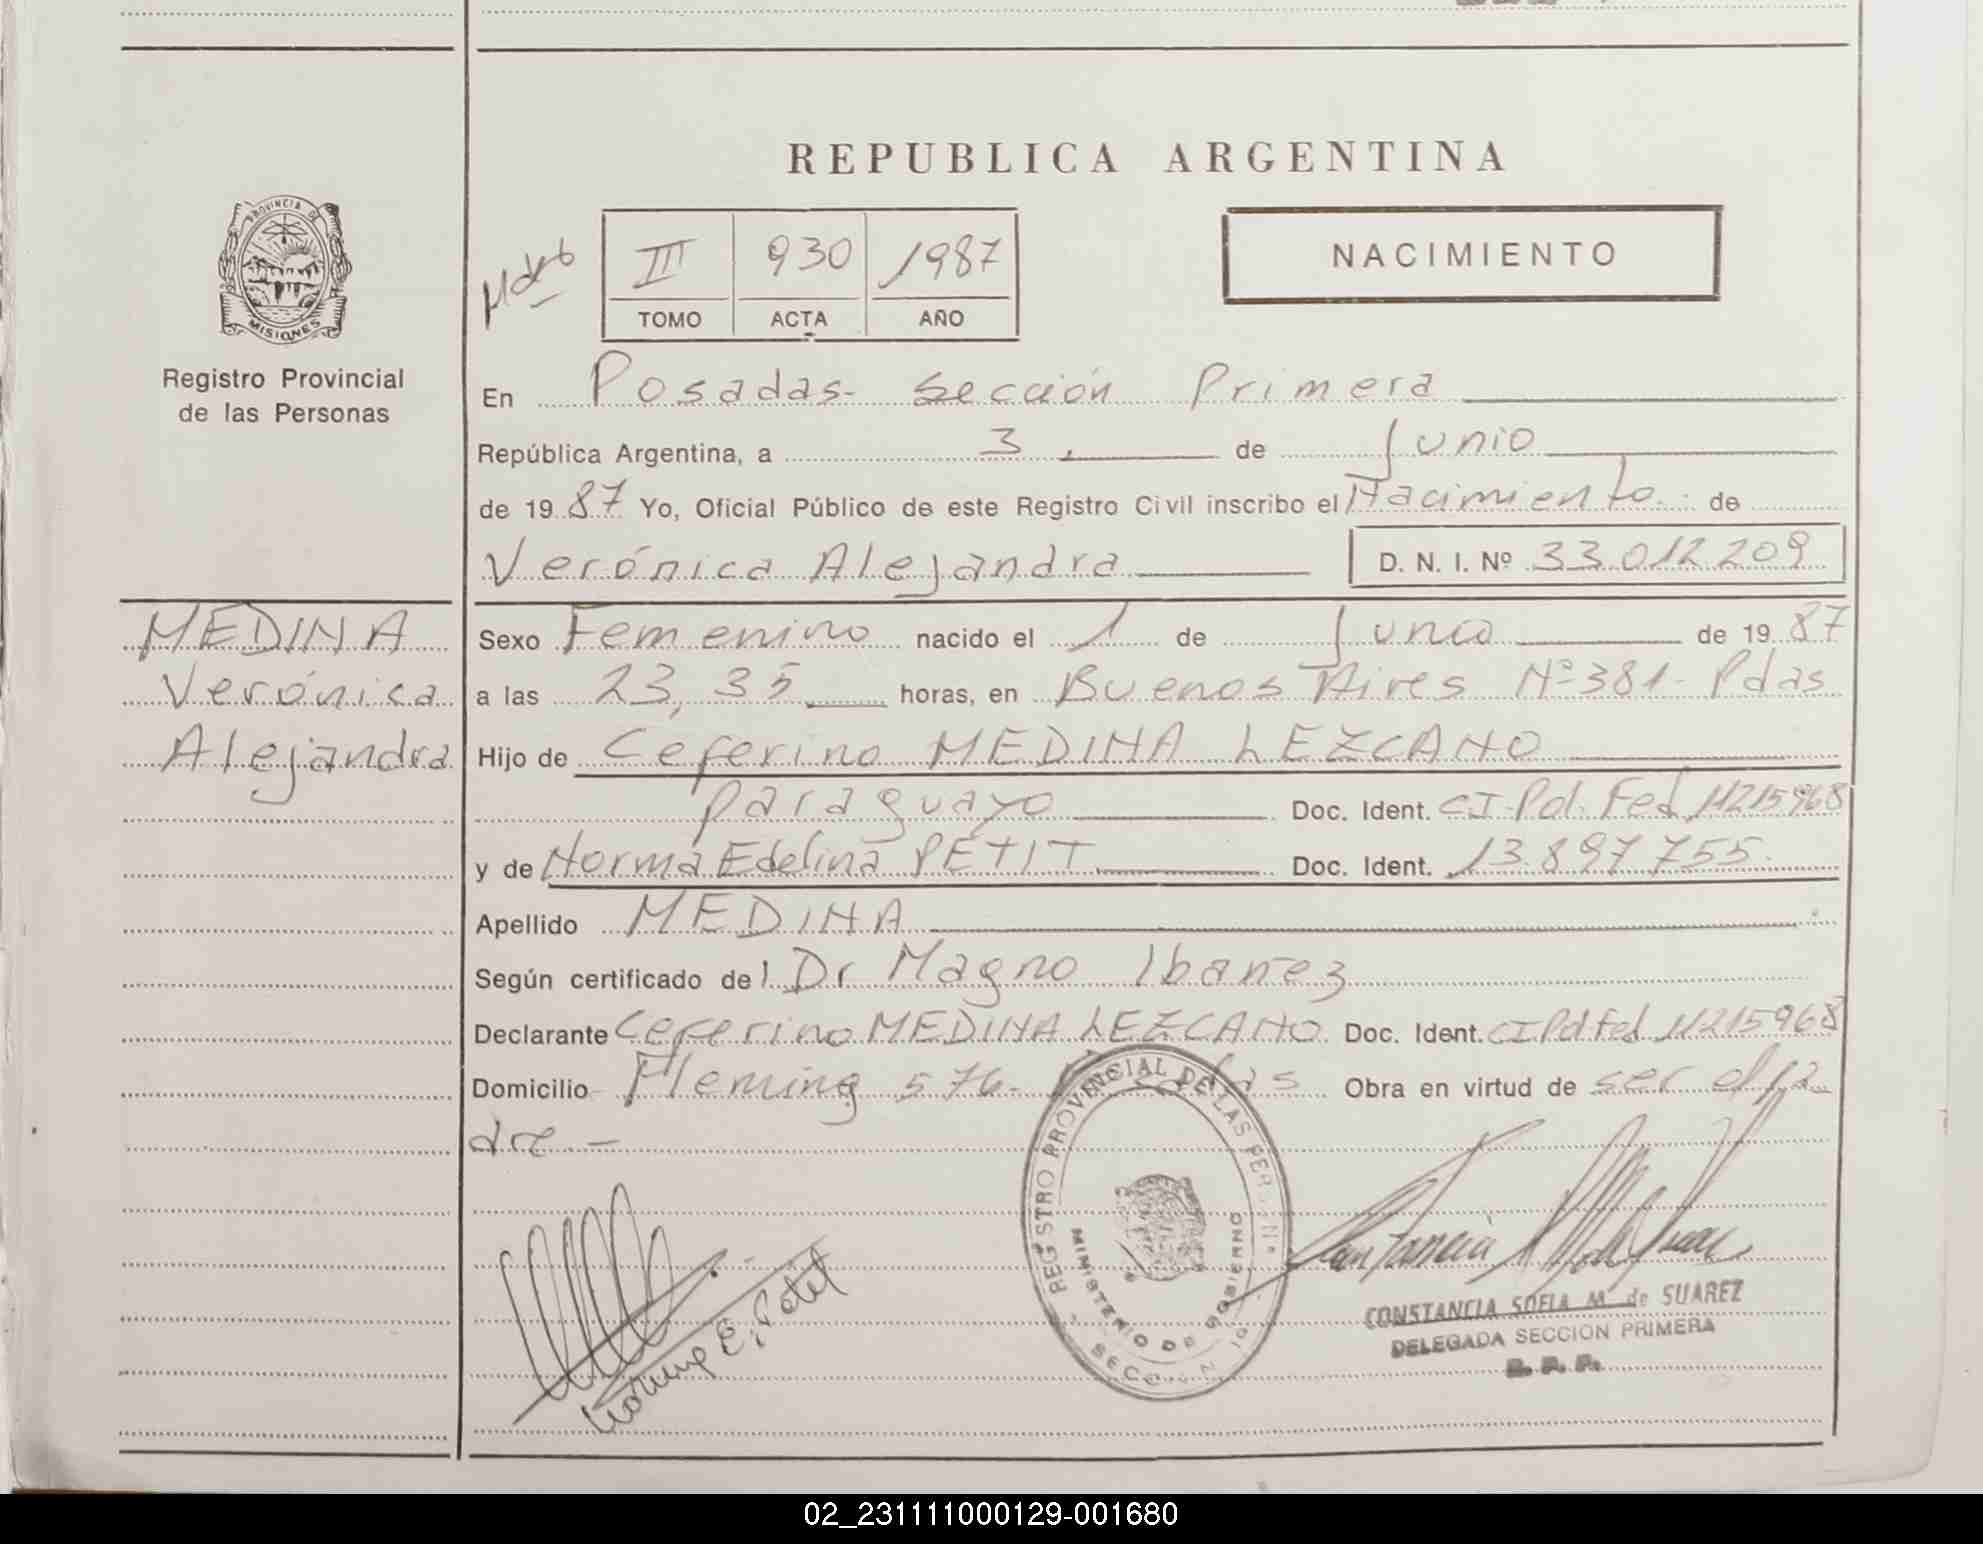 REPUBLICA ARGENTINA
PROVINCIA DE
MISIONES
Registro Provincial
de las Personas
III 930 1987
TOMO ACTA AÑO
NACIMIENTO
En Posadas- Sección Primera
República Argentina, a 3 de Junio
de 1987 Yo, Oficial Público de este Registro Civil inscribo el Nacimiento de
Verónica Alejandra D. N. I. Nº 33.012.209
MEDINA
Verónica
Alejandra
Sexo Femenino nacido el 1 de Junio de 1987
a las 23,35 horas, en Buenos Aires Nº 381- Pdas
Hijo de Ceferino MEDINA LEZCANO
paraguayo Doc. Ident. CI-Pol. Fed 11215968
y de Norma Edelina PETIT Doc. Ident. 13.897.755
Apellido MEDINA
Según certificado del Dr Magno Ibañez
Declarante Ceferino MEDINA LEZCANO Doc. Ident. CI Pol Fed 11215968
Domicilio Fleming 576- Obra en virtud de ser el pa
dre.-
REGISTRO PROVINCIAL DE LAS PER
MINISTERIO DE GOBIERNO
Norma E. Petit
CONSTANCIA SOFIA M. de SUAREZ
DELEGADA SECCION PRIMERA
R. P. P.
02_231111000129-001680